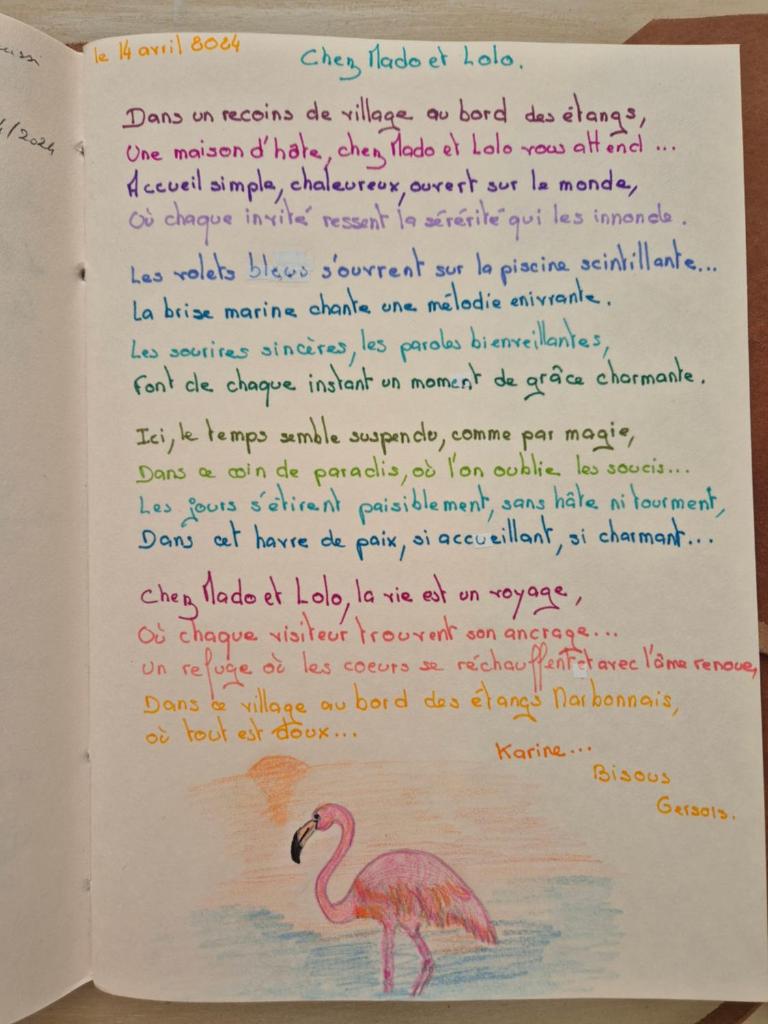 le 14 avril 2024
Chez Mado et Lolo.
Dans un recoins de village au bord des étangs,
Une maison d'hôte, chez Mado et Lolo vous attend ...
Accueil simple, chaleureux, ouvert sur le monde,
Où chaque invité ressent la sérérité qui les innonde.
Les volets bleus s'ouvrent sur la piscine scintillante...
La brise marine chante une mélodie enivrante.
Les sourires sincères, les paroles bienveillantes,
Font de chaque instant un moment de grâce charmante.
Ici, le temps semble suspendu, comme par magie,
Dans ce coin de paradis, où l'on oublie les soucis...
Les jours s'étirent paisiblement, sans hâte ni tourment,
Dans cet havre de paix, si accueillant, si charmant...
Chez Mado et Lolo, la vie est un voyage,
Où chaque visiteur trouvent son ancrage...
un refuge où les coeurs se réchauffent et avec l'âme renoue,
Dans ce village au bord des étangs Narbonnais,
où tout est doux...
Karine...
Bisous
Gersois.
/2024